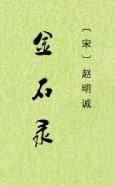 〔宋〕赵明诚
金石录